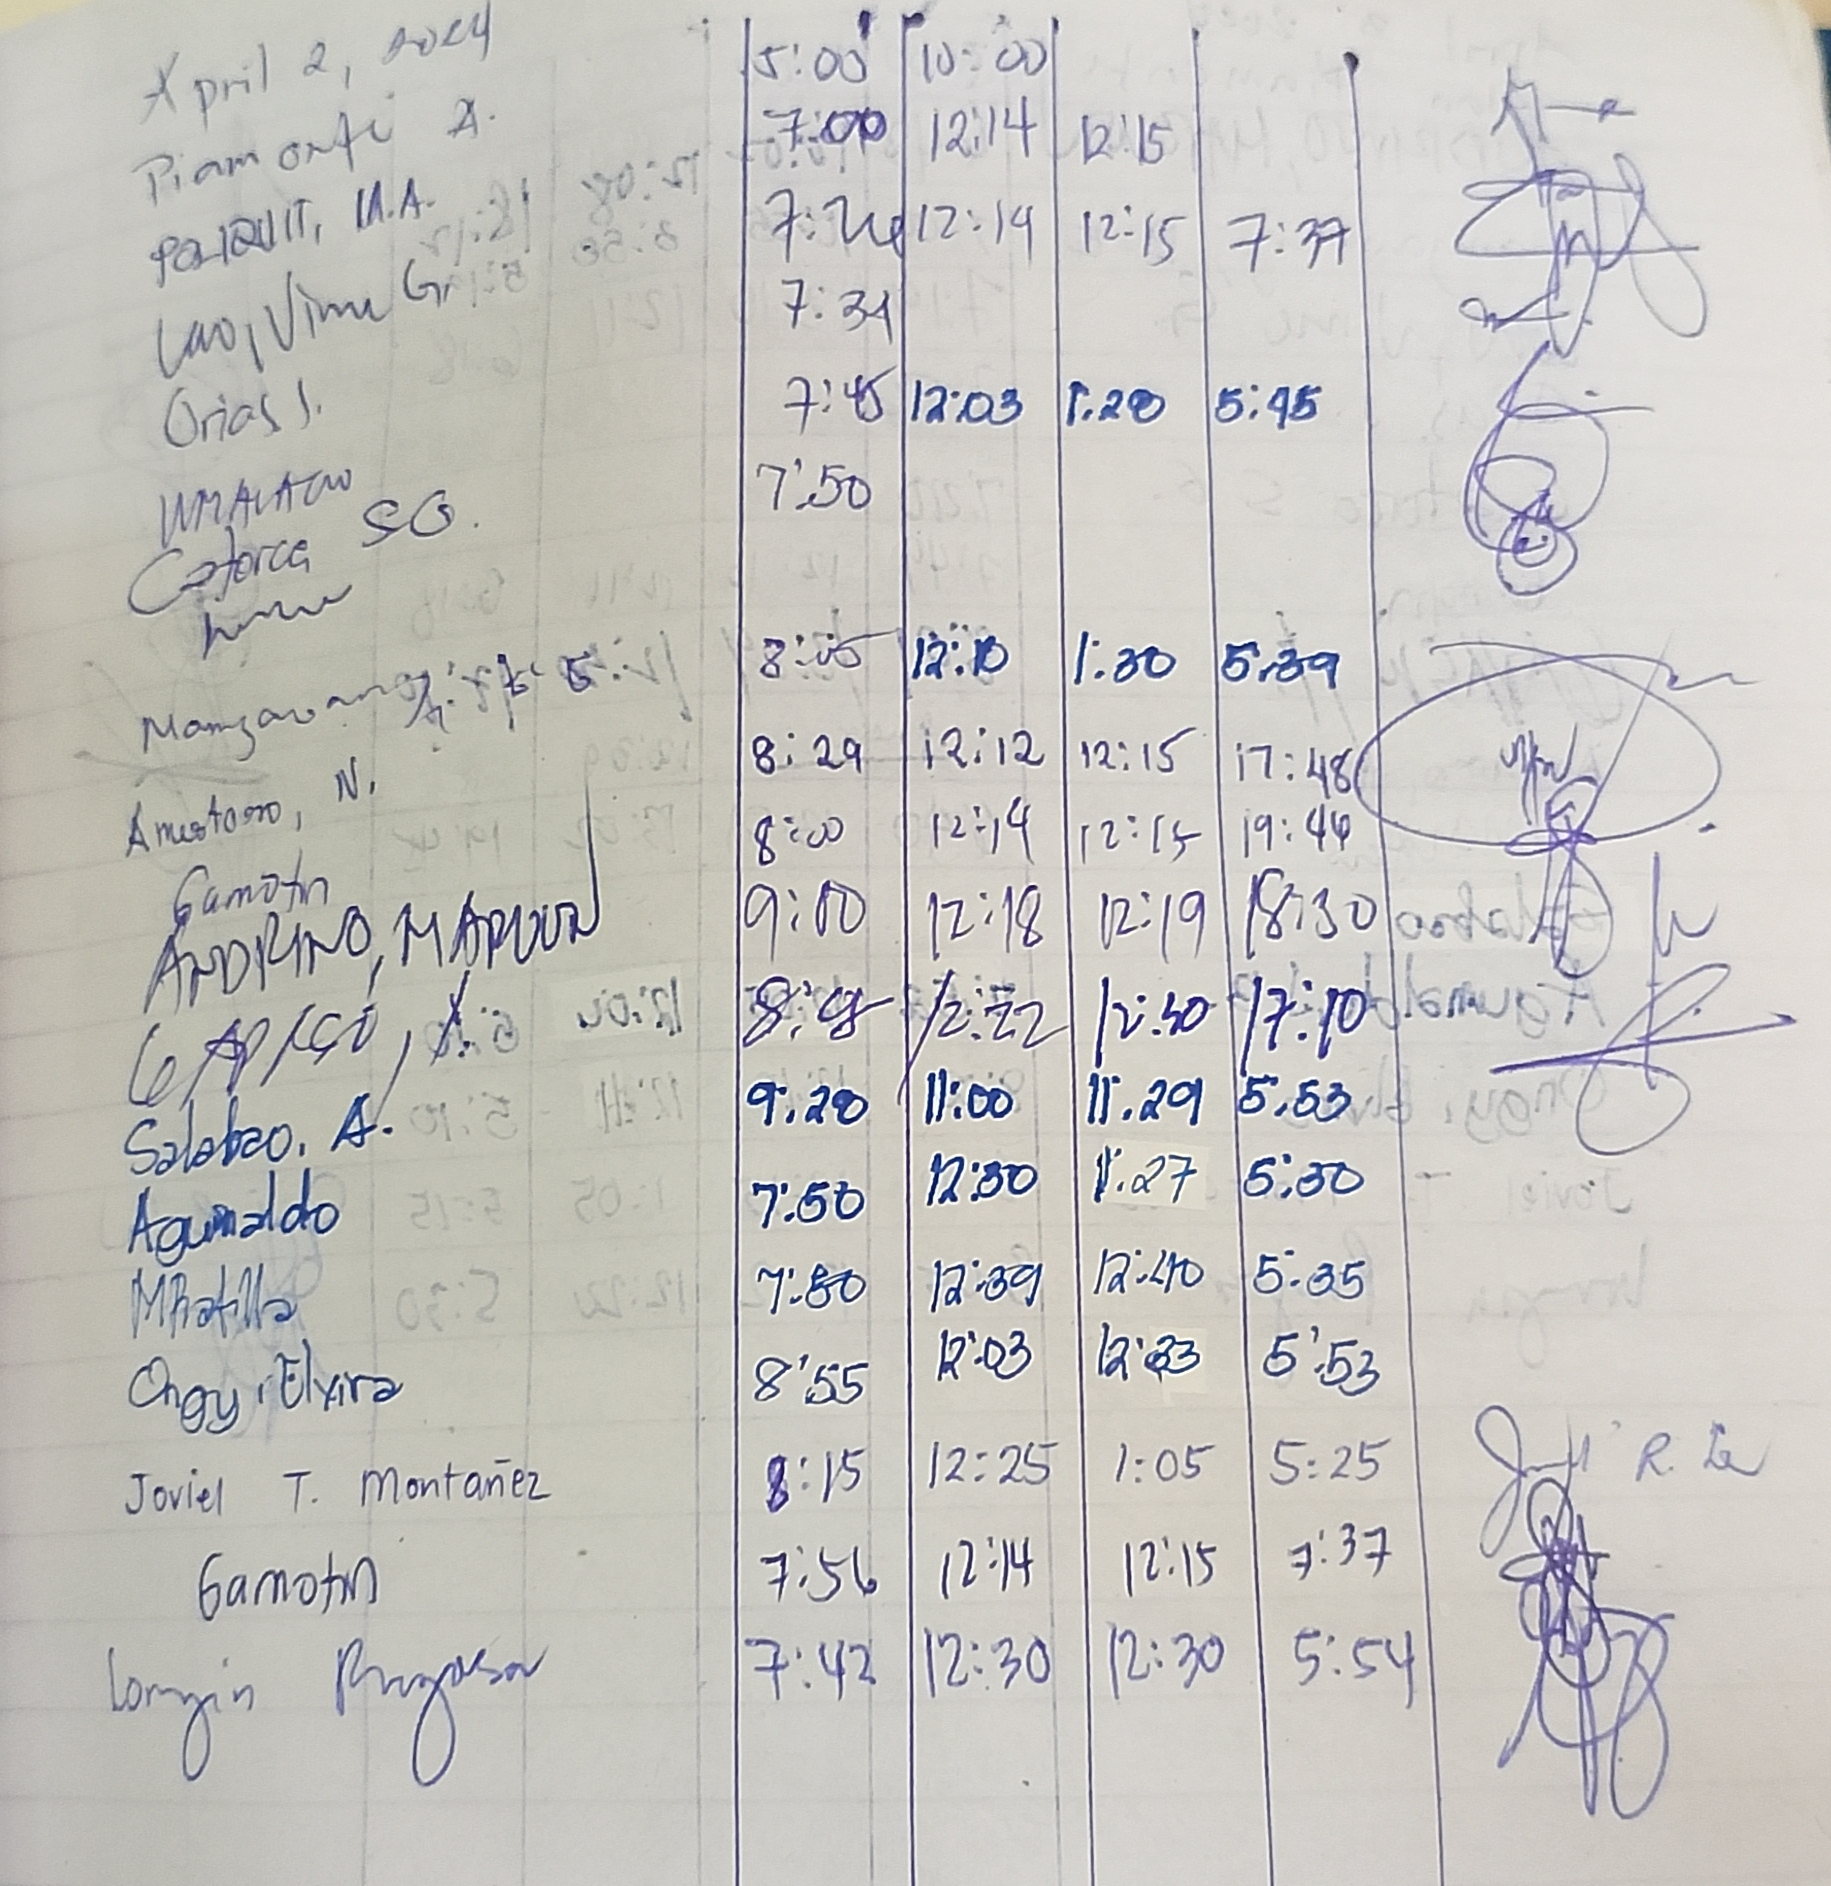 April 2, 2024 5:00 10:00
Piamonte A. 7:00 12:14 12:15
M.A. 7:26 12:14 12:15 7:37
Lao, Vime G. 7:34
Orias J. 7:45 12:03 1:20 5:45
UMALACAO 7:50
Catorce SG.
Manzano 8:05 12:10 1:30 5:39
Amestoso, N. 8:29 12:12 12:15 17:48
Gamotin 8:00 12:14 12:15 19:44
ANDRINO, MARVIN 9:00 12:18 12:19 18:30
GAPASO, X. 12:22 12:30 17:10
Salabao, A. 9:20 11:00 11:29 5:53
Aguinaldo 7:50 12:30 1:27 5:30
MPatilla 7:50 12:39 12:40 5:35
Ongy, Elvira 8:55 12:03 12:33 5:53
Joviel T. Montañez 8:15 12:25 1:05 5:25
Gamotin 7:56 12:14 12:15 7:37
7:42 12:30 12:30 5:54